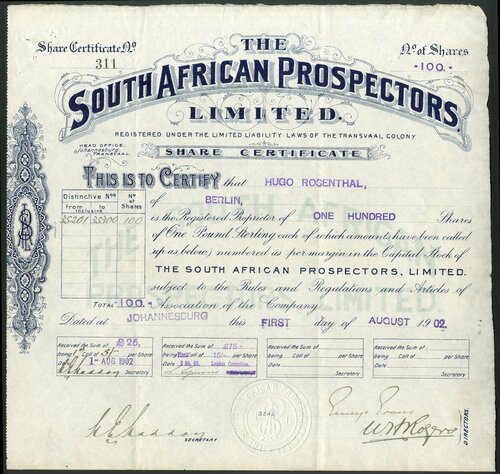 Share Certificate No
311
THE
No of Shares
-100-
SOUTH AFRICAN PROSPECTORS,
LIMITED.
REGISTERED UNDER THE LIMITED LIABILITY LAWS OF THE TRANSVAAL COLONY
HEAD OFFICE,
Johannesburg,
TRANSVAAL
SHARE CERTIFICATE
THIS IS TO CERTIFY that HUGO ROSENTHAL,
of BERLIN,
Distinctive Nos
from to
inclusive
No
of
Shares
35201 35300 100
is the Registered Proprietor of ONE HUNDRED Shares
of One Pound Sterling each of which amounts have been called
up as below, numbered as per margin in the Capital Stock of
THE SOUTH AFRICAN PROSPECTORS, LIMITED.
subject to the Rules and Regulations and Articles of
TOTAL 100- Association of the Company.
Dated at JOHANNESBURG this FIRST day of AUGUST 1902.
Received the Sum of £25,
being Call of 5/- per Share
1- AUG 1902
Secretary
Received the Sum of £75-
being Final Call of 15/- per Share
London Committee
Secretary
Received the Sum of
being Call of per Share
Secretary
Received the Sum of
being Call of per Share
Secretary
SECRETARY
SEAL
DIRECTORS